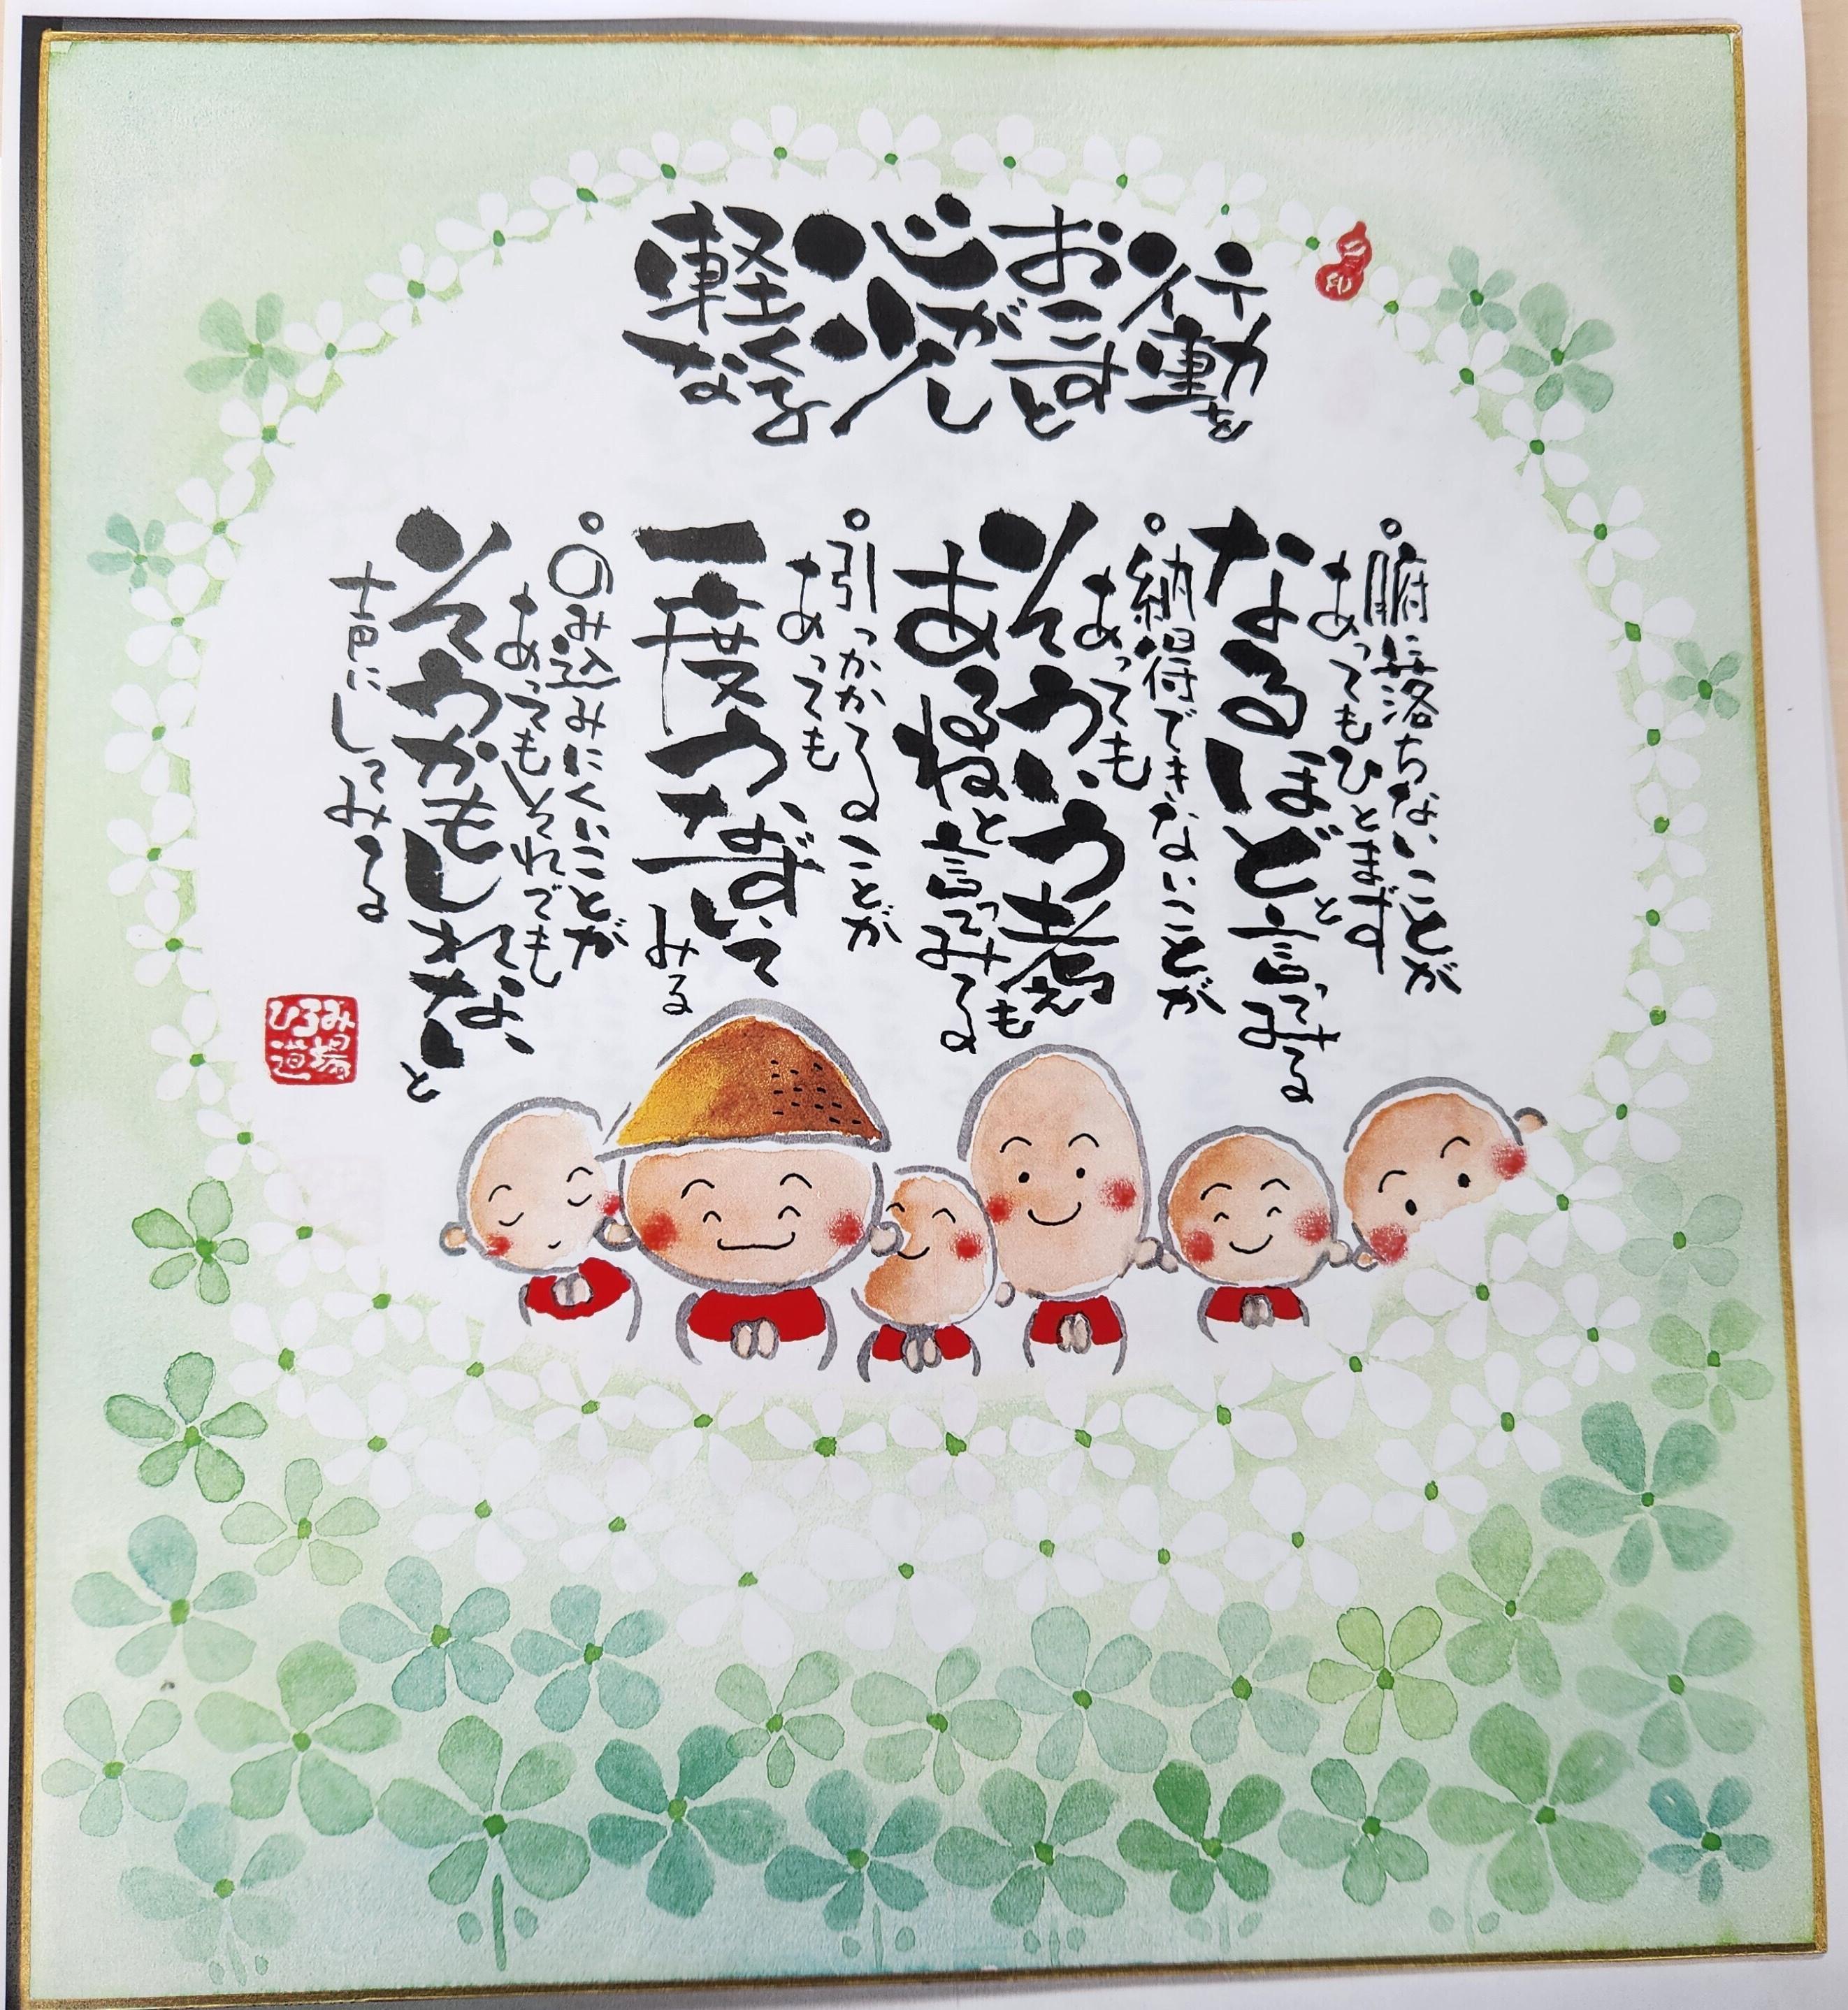 行動を
おこすと
心が
少し
軽く
なる
。腑に落ちないことが
あってもひとまず
なるほどと言ってみる
。納得できないことが
あっても
そういう考えも
あるねと言ってみる
。引っかかることが
あっても
一度うなずいて
みる
。のみ込みにくいことが
あってもそれでも
そうかもしれないと
声にしてみる
ひろみ
道場